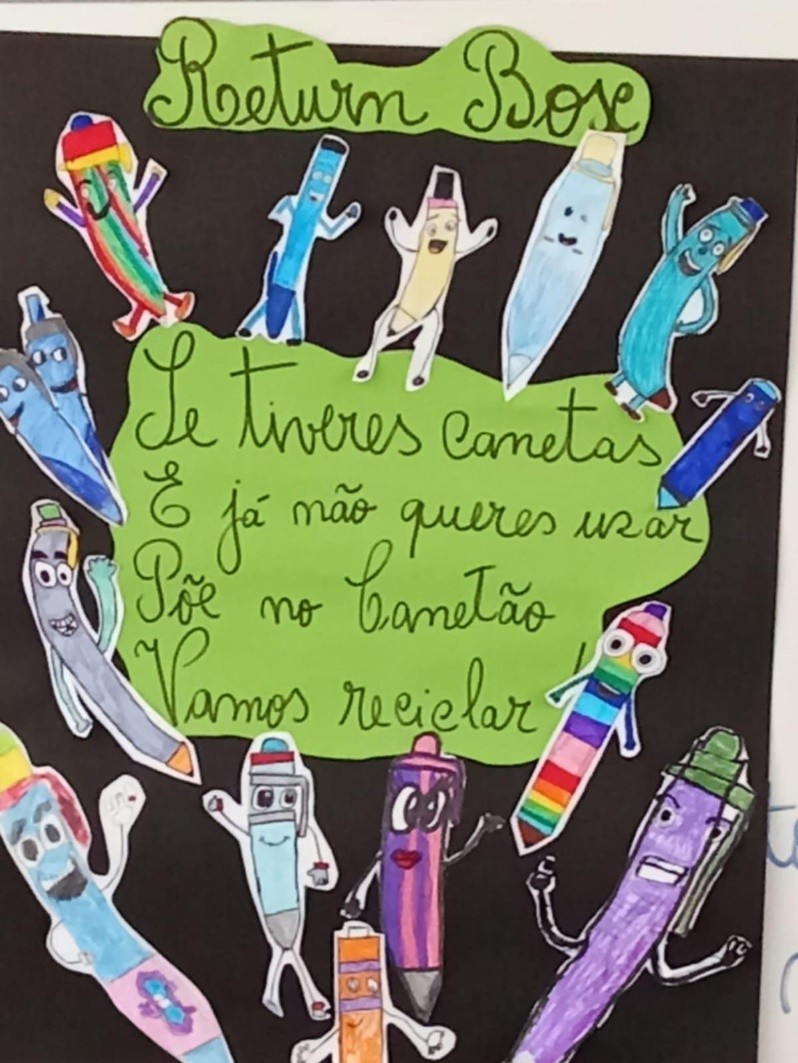 Return Box
Se tiveres canetas
E já não queres usar
Põe no Canetão
Vamos reciclar!